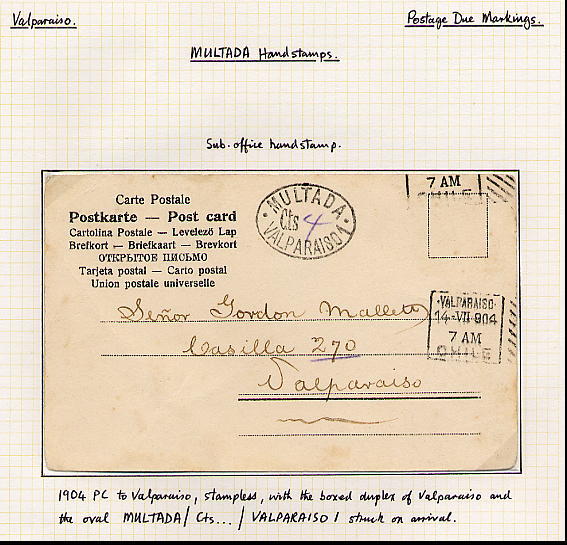 Valparaiso.
Postage Due Markings.
MULTADA Handstamps.
Sub-office handstamp.
7 AM
CHILE
Carte Postale
Postkarte — Post card
Cartolina Postale — Levelező Lap
Brefkort — Briefkaart — Brevkort
ОТКРЫТОЕ ПИСЬМО
Tarjeta postal — Carto postal
Union postale universelle
MULTADA
Cts 4
VALPARAISO 1
Señor Gordon Mallett
Casilla 270
Valparaiso
VALPARAISO
14-VII 904
7 AM
CHILE
1904 PC to Valparaiso, stampless, with the boxed duplex of Valparaiso and
the oval MULTADA/ Cts... / VALPARAISO 1 struck on arrival.